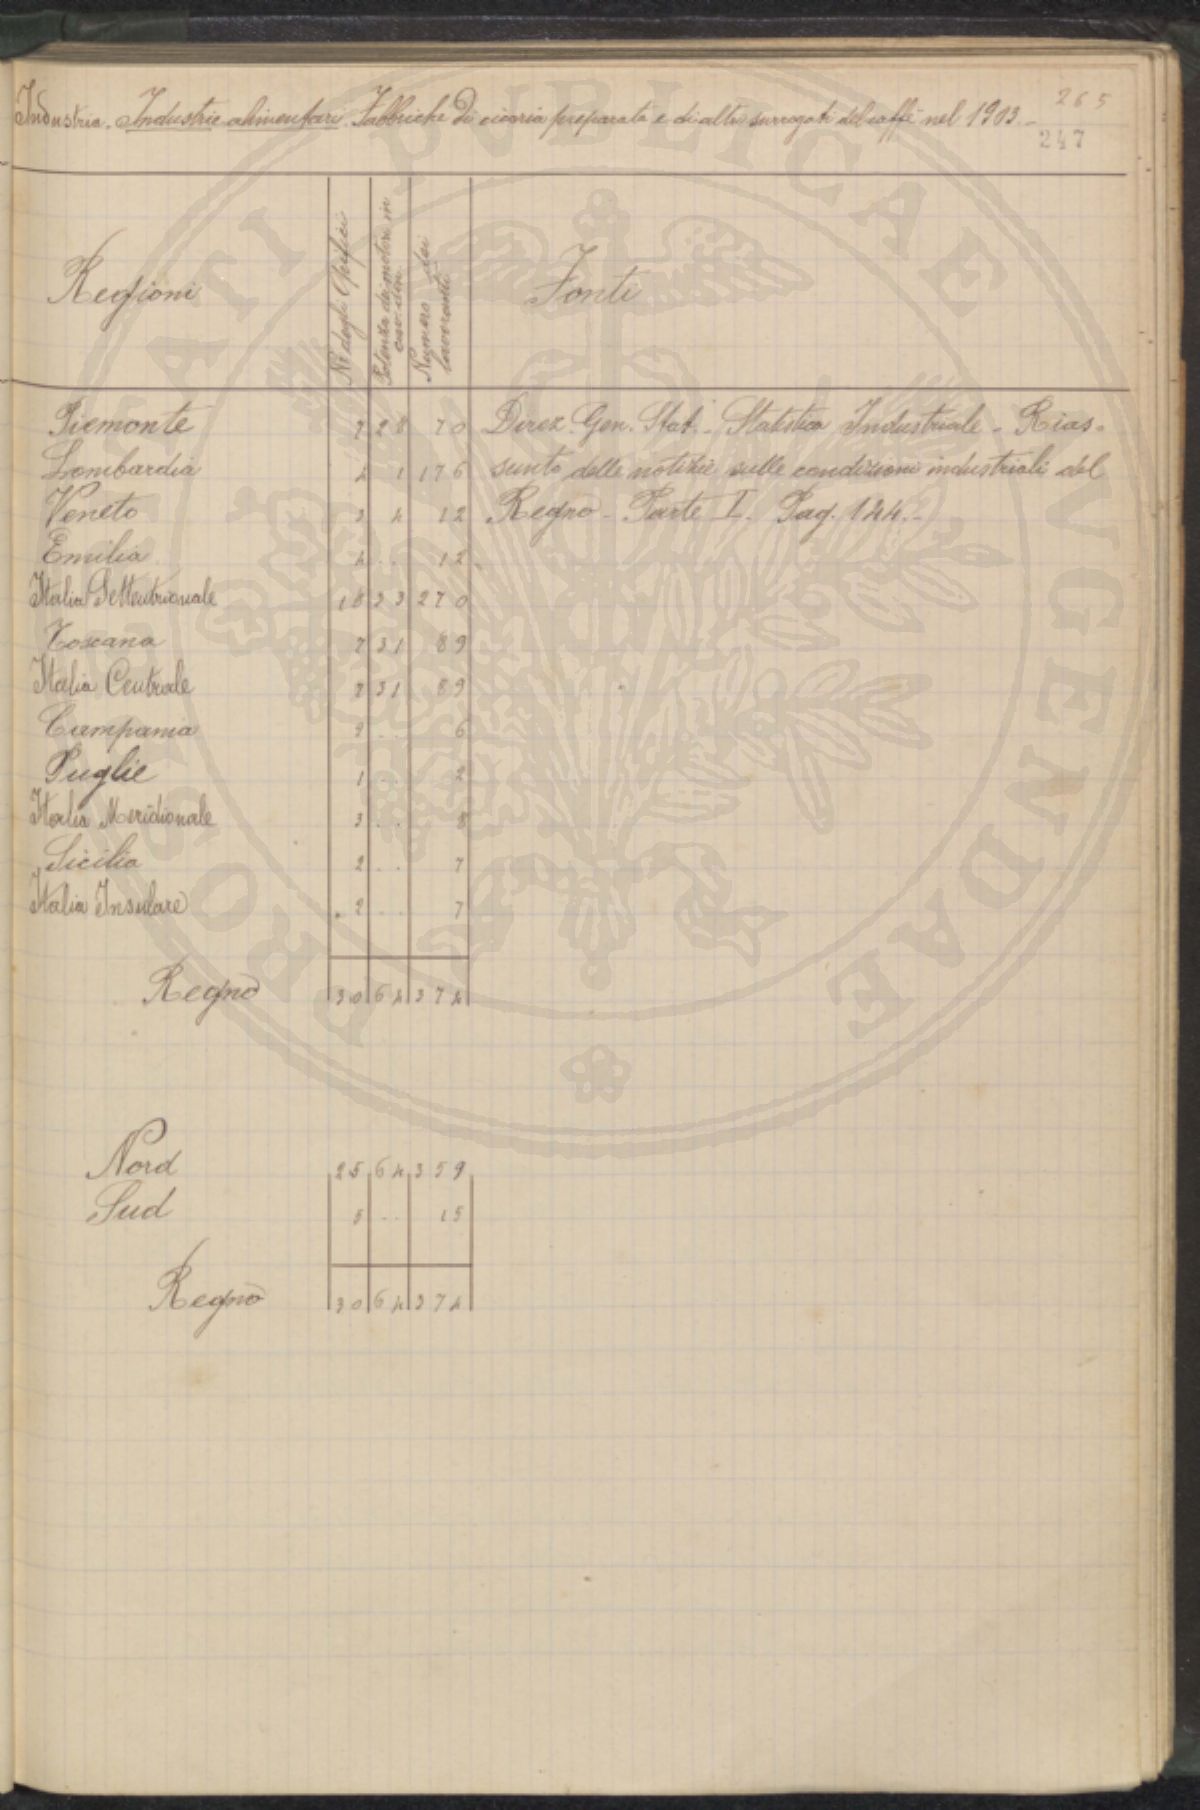 Industria. Industrie alimentari. Fabbriche di cicoria preparata e di altri surrogati del caffè nel 1903.-
265
247
Regioni
N.o degli Opifici
Potenza dei motori in cav. din.
Numero dei lavoranti
Fonti
Piemonte 7 28 70 Direz. Gen. Stat. - Statistica Industriale - Rias-
Lombardia 4 1 176 sunto delle notizie sulle condizioni industriali del
Veneto 3 4 12 Regno - Parte I. Pag. 144.-
Emilia 4 .. 12
Italia Settentrionale 18 33 270
Toscana 7 31 89
Italia Centrale 7 31 89
Campania 2 .. 6
Puglie 1 .. 2
Italia Meridionale 3 .. 8
Sicilia 2 .. 7
Italia Insulare 2 .. 7
Regno 30 64 374
Nord 25 64 359
Sud 5 .. 15
Regno 30 64 374
ROSTRATI PUBLICAE VIGENDAE